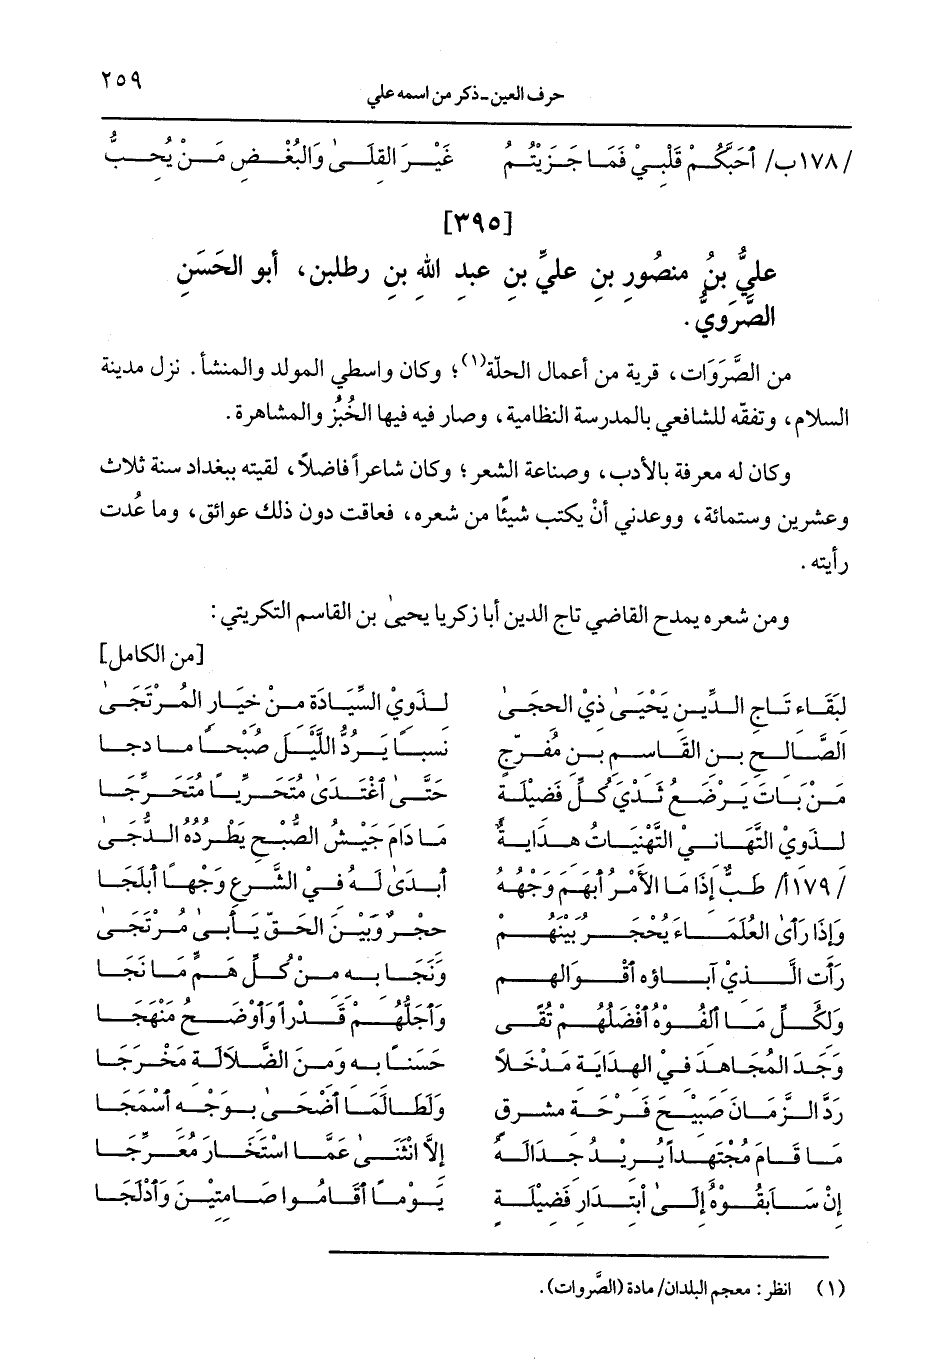 حرف العين - ذكر من اسمه علي ٢٥٩
/١٧٨ب/ أَحَبَّكُمْ قَلْبِيْ فَمَا جَزَيْتُمُ غَيْرَ القِلَىٰ وَالبُغْضِ مَنْ يُحِبُّ
[٣٩٥]
عليُّ بنُ منصُورِ بنِ عليِّ بنِ عبدِ اللهِ بنِ رطلين، أبو الحَسَنِ
الصَّرَوِيُّ.
من الصَّرَوَات، قرية من أعمال الحلّة(١)؛ وكان واسطي المولد والمنشأ. نزل مدينة
السلام، وتفقّه للشافعي بالمدرسة النظامية، وصار فيه فيها الخُبْزُ والمشاهرة.
وكان له معرفة بالأدب، وصناعة الشعر؛ وكان شاعراً فاضلاً، لقيته ببغداد سنة ثلاث
وعشرين وستمائة، ووعدني أنْ يكتب شيئًا من شعره، فعاقت دون ذلك عوائق، وما عُدت
رأيته.
ومن شعره يمدح القاضي تاج الدين أبا زكريا يحيىٰ بن القاسم التكريتي:
[من الكامل]
لبَقَاءِ تَاجِ الدِّينِ يَحْيَىٰ ذِيْ الحِجَىٰ لِذَوِيْ السِّيَادَةِ مِنْ خِيَارِ المُرْتَجَىٰ
الصَّالِحِ بنِ القَاسِمِ بنِ مُفَرِّجٍ نَسَبًا يَرُدُّ اللَّيْلَ صُبْحًا مَا دجا
مَنْ بَاتَ يَرْضَعُ ثَدْيَ كُلِّ فَضِيْلَةٍ حَتَّى أغْتَدَىٰ مُتَحَرِّيًا مُتَحَرِّجَا
لِذَوِيْ التَّهَانِيْ التَّهْنِيَاتُ هِدَايَةٌ مَا دَامَ جَيْشُ الصُّبْحِ يَطْرُدُهُ الدُّجَىٰ
/١٧٩أ/ طَبٌّ إِذَا مَا الأَمْرُ أَبْهَمَ وَجْهُهُ أَبْدَىٰ لَهُ فِيْ الشَّرْعِ وَجْهًا أَبْلَجَا
وَإِذَا رَأَىٰ العُلَمَاءَ يُحْجَرُ بَيْنَهُمْ حِجْرٌ وَبَيْنَ الحَقِّ يَأْبَىٰ مُرْتَجَىٰ
رَأَتِ الَّذِيْ آبَاؤُه أَقْوَالَهِم وَنَجَا بِهِ مِنْ كُلِّ هَمٍّ مَا نَجَا
وَلِكُلِّ مَا أَلِفُوْهُ أَفْضَلُهُمْ تُقَىً وَأَجَلُّهُمْ قَدْراً وَأَوْضَحُ مَنْهَجَا
وَجَدَ المُجَاهِدُ فِيْ الهِدَايَةِ مَدْخَلاً حَسَنًا بِهِ وَمِنَ الضَّلاَلَةِ مَخْرَجَا
رَدَّ الزَّمَانَ صَبِيْحَ فَرْحَةِ مشرقٍ وَلَطَالَمَا أَضْحَىٰ بِوَجْهٍ أَسْمَجَا
مَا قَامَ مُجْتَهِداً يُرِيْدُ جِدَالَهُ إِلاَّ انْثَنَىٰ عَمَّا اسْتَخَارَ مُعَرِّجَا
إِنْ سَابَقُوْهُ إِلَىٰ أبتِدَارِ فَضِيْلَةٍ يَوْمًا أَقَامُوا صَامِتِيْنَ وَأَدْلَجَا
(١) انظر: معجم البلدان/ مادة (الصَّروات).